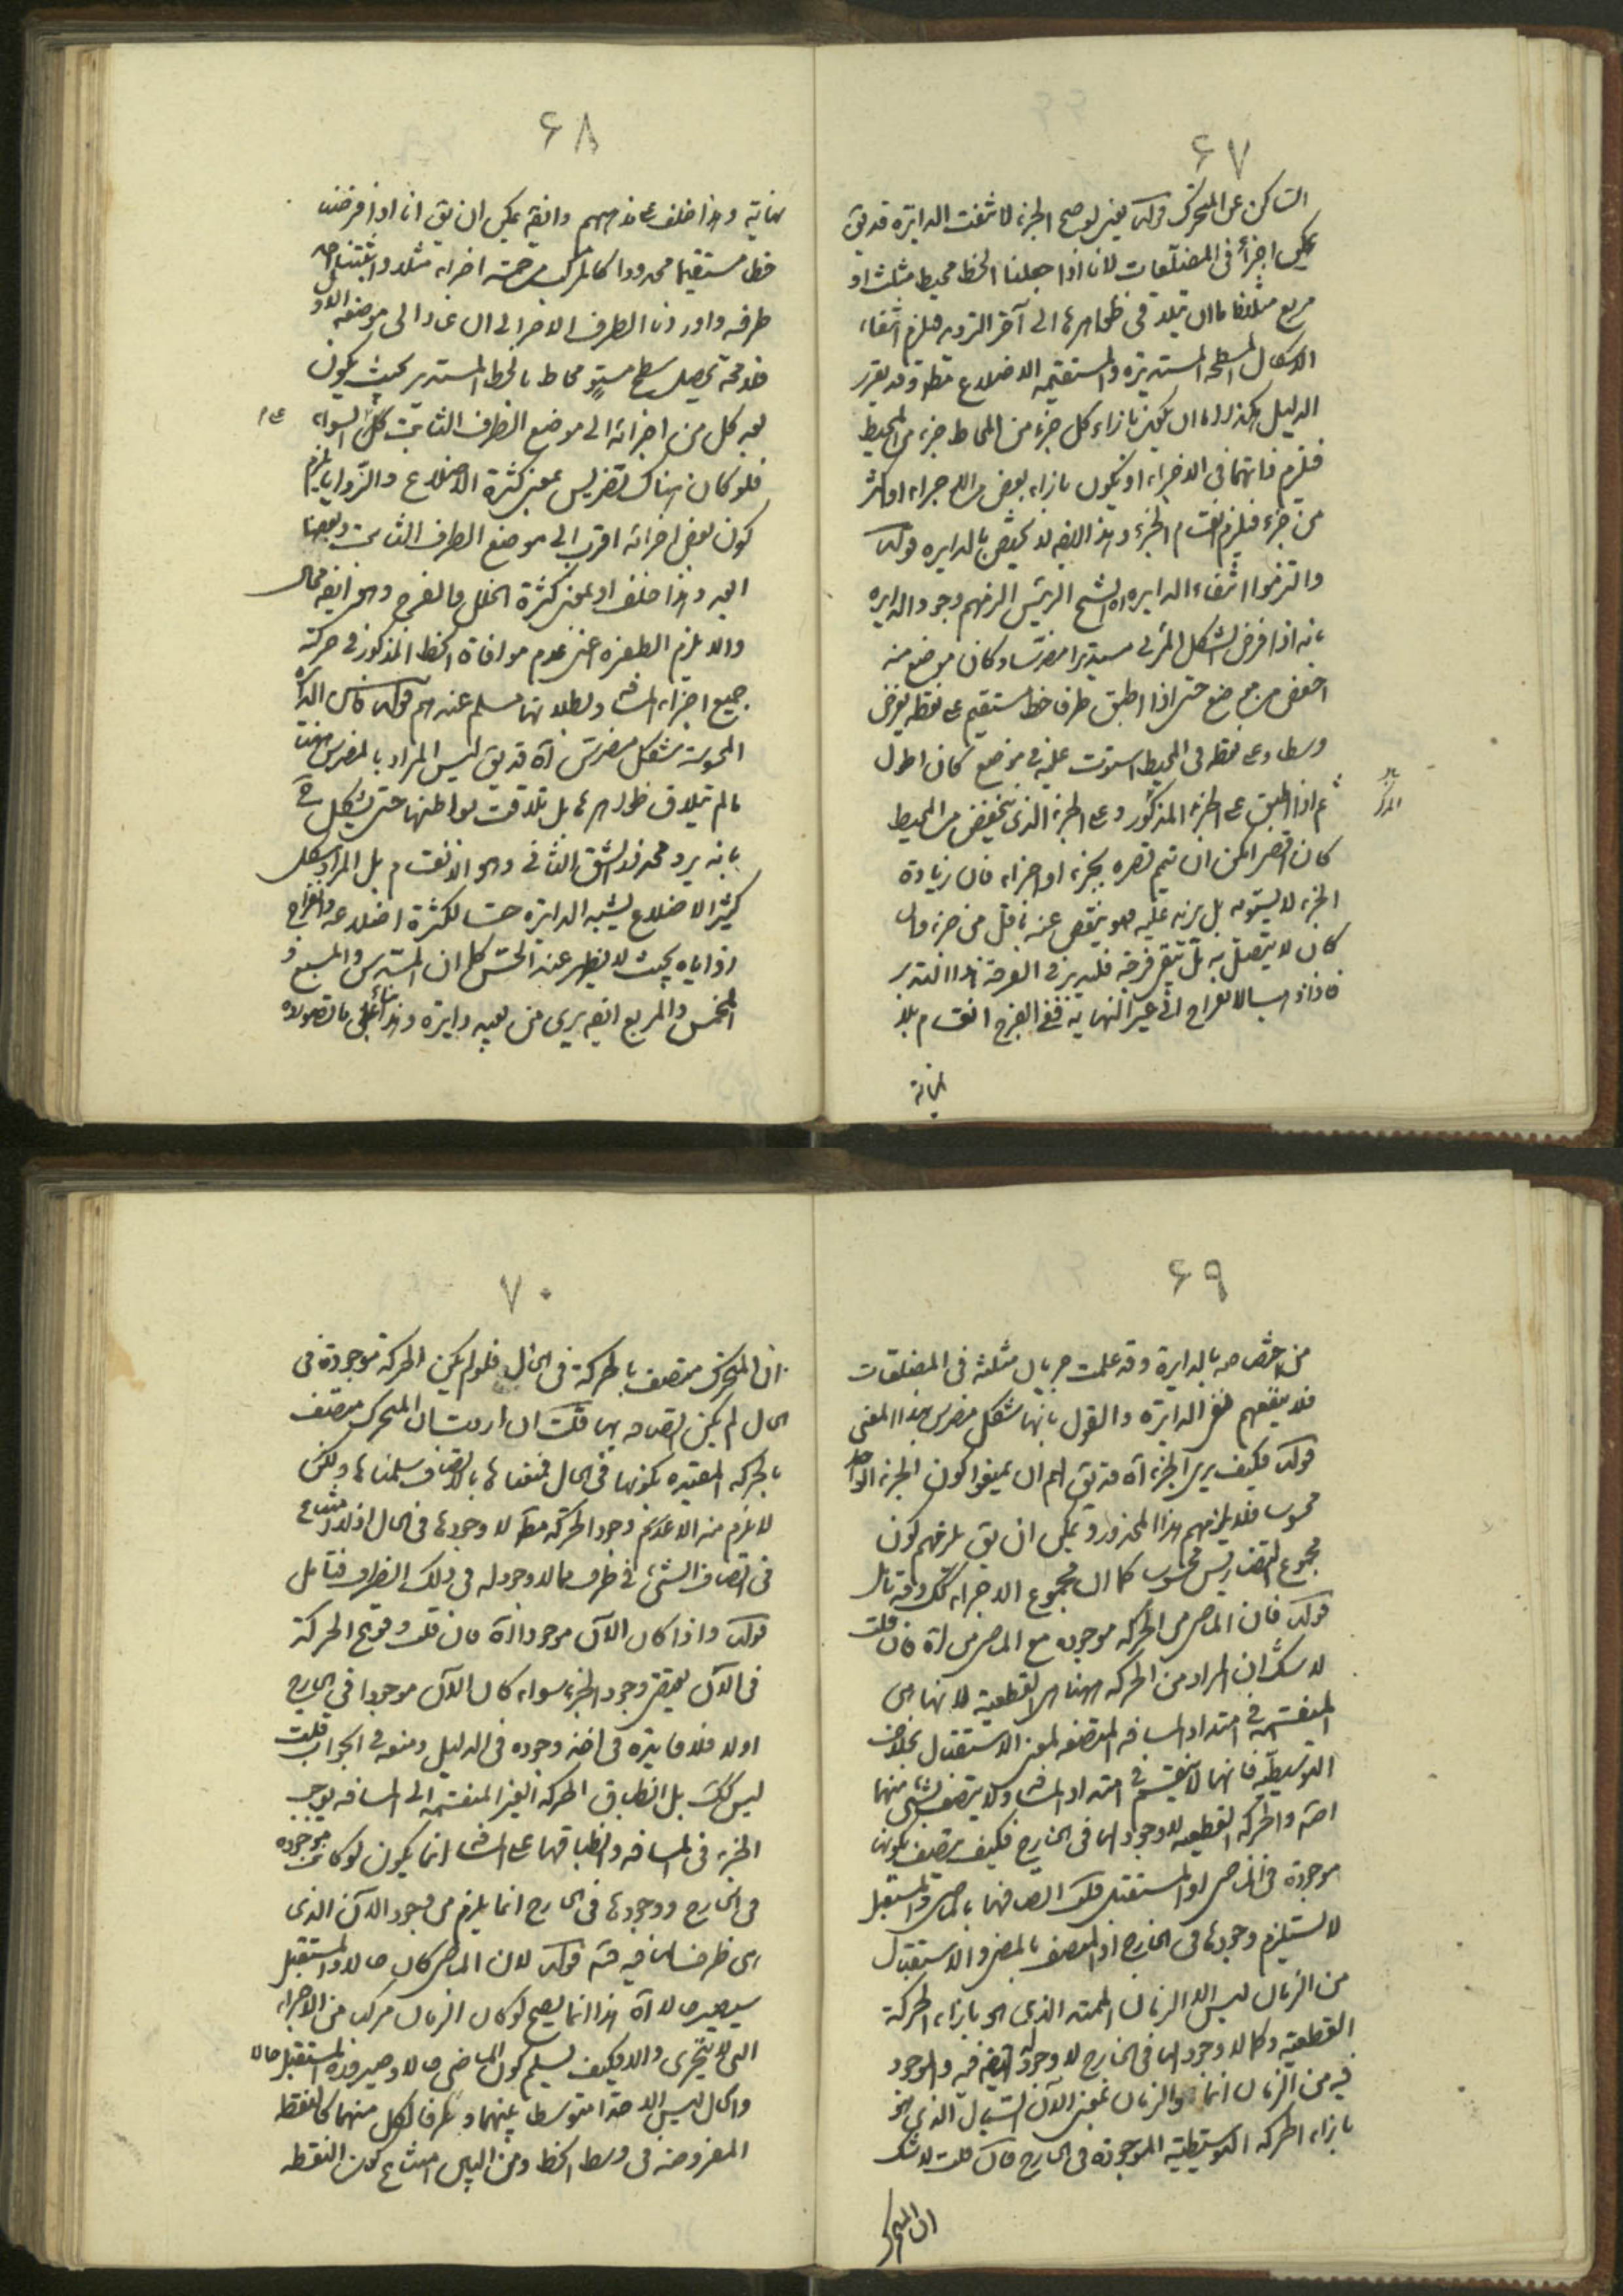 ۶۷
الساكن عن المتحرك قوله يعنى لو صح الجزء لانتفت الدايرة قد يق
يمكن اجزاؤه فى المضلّعات لانا اذا جعلنا الخط محيط مثلث او
مربع مثلثا فاما ان يتلاقى ظواهرها الى آخر الترديد فيلزم انتفاء
الاشكال المسطحة المستديرة والمستقيمة الاضلاع مطلقا وقد يقرر
الدليل هكذا اما ان يكون بازاء كل جزء من المحاط جزء من المحيط
فيلزم تساويهما فى الاجزاء او يكون بازاء بعض من الاجزاء اكثر
من جزء فيلزم انقسام الجزء وهذا ايضه لا يختص بالدايره قوله
والتزموا انتفاء الدايره اه الشيخ الرئيس الزمهم وجود الدايره
بانه اذا فرض الشكل المرئى مستديرا مضرسا وكان موضع منه
اخفض من موضع حتى اذا اطبق طرف خط مستقيم على نقطه يفرض
وسطا وعلى نقطه فى المحيط استوت عليه فى موضع كان اطول
ثم اذا اطبق على الجزء المذكور وعلى الجزء الذى ينخفض من المحيط
كان اقصر امكن ان يتم قصره بجزء او اجزاء فان زيادة
الجزء لا يستويه بل يزيد عليه فهو ينقص عنه باقل من جزء وان
كان لا يتصل به بل يبقى فرجه فليدبر فى الفرجة هذا التدبير
فاذا ذهب الانفراج الى غير النهاية ففى الفرج انقسام بلا
نهاية
۶۸
نهاية وهذا خلف على مذهبهم وايضه يمكن ان يق انا اذا فرضنا
خطا مستقيما محدودا كالمركب من خمسة اجزاء مثلا واثبتنا احد
طرفيه وادرنا الطرف الاخر الى ان عاد الى موضعه الاول
فلا محة يحصل سطح مستو محاط بالخط المستدير بحيث يكون
بعد كل من اجزائه الى موضع الطرف الثابت على السواء
فلو كان هناك تضريس بمعنى كثرة الاضلاع والزوايا يلزم
كون بعض اجزائه اقرب الى موضع الطرف الثابت وبعضها
ابعد وهذا خلف او بمعنى كثرة الخلل والفرج وهو ايضه محال
والا يلزم الطفره اعنى عدم موافاة الخط المذكور فى حركته
جميع اجزاء المسافه وبطلانها مسلم عندهم قوله فاس الدائره
المحسوسة شكل مضرس آه قد يق ليس المراد بالمضرس ههنا
ما لم يتلاق ظواهرها بل تلاقت بواطنها حتى يشكل ح
بانه يرد محذور الشق الثانى وهو الانقسام بل المراد شكل
كثير الاضلاع يشبه الدايرة حسا لكثرة اضلاعه وانفراج
زواياه بحيث لا يظهر عند الحس كما ان المسدس والمسبع و
المخمس والمربع ايضه يرى من بعيد دايرة وهذا بناء على ما تصوروه
۶۹
من اختصاصه بالدايرة وقد علمت جريان مثلثه فى المضلعات
فلا ينفعهم نفى الدايرة والقول بانها شكل مضرس بهذا المعنى
قوله فكيف يرى الجزء آه قد يق لهم ان يمنعوا كون الجزء الواحد
محسوسا فلا يلزمهم هذا المحذور ويمكن ان يق يلزمهم كون
مجموع التضاريس محسوسا كما ان مجموع الاجزاء كك وقد تأمل
قوله فان الماضى من الحركه موجوده مع الماضى من آه فان قلت
لا شك ان المراد من الحركه ههنا هى القطعية لانها هى
المنقسمة فى امتداد المسافه المتصفه لمعنى الاستقبال بخلاف
التوسطيّه فانها لا ينقسم فى امتداد المسافه ولا يتصف بشئ منهما
اصلا والحركه القطعيه لا وجود لها فى الخارج فكيف يتصف بكونها
موجودة فى الماضى او المستقبل قلت اتصافها بالماضى والمستقبل
لا يستلزم وجودها فى الخارج اذ المتصف بالمضى والاستقبال
من الزمان ليس الا الزمان الممتد الذى هو بازاء الحركة
القطعية وكما لا وجود لها فى الخارج لا وجود له ايضه فيه والموجود
فيه من الزمان انما هو الزمان بمعنى الآن السيال الذى هو
بازاء الحركه التوسطيه الموجودة فى الخارج فان قلت لا شك
ان المتحرك
۷۰
ان المتحرك متصف بالحركة فى الحال فلو لم يكن الحركة موجودة فى
الحال لم يكن اتصافه بها قلت ان اردت ان المتحرك متصف
بالحركه المقيده بكونها فى الحال فنمنعا ها بالاتصاف سلمناها ولكن
لا يلزم منه الا عدم وجود الحركة مطلقا لا وجودها فى الحال اذ لا امتناع
فى اتصاف الشئ فى ظرف بما لا وجود له فى ذلك الظرف فتأمل
قوله واذا كان الآن موجودا آه فان قلت وقوع الحركة
فى الآن يقتضى وجود الجزء سواء كان الآن موجودا فى الخارج
اولا فلا فايدة فى اخذ وجوده فى الدليل ومنعه فى الجواب قلت
ليس كك بل انطباق الحركه الغير المنقسمه الى المسافه يوجب
الجزء فى المسافه وانطباقها على المسافه انما يكون لو كانت موجوده
فى الخارج ووجودها فى الخارج انما يلزم من وجود الآن الذى
هى ظرفها فيه قوله لان الماضى كان حالا والمستقبل
سيصير حالا آه هذا انما يصح لو كان الزمان مركبا من الاجزاء
التى لا يتجزى والا فكيف يسلم كون الماضى حالا وصيرورة المستقبل حالا
والحال ليس الا حدا متوسطا بينهما وطرفا لكل منهما كالنقطه
المفروضه فى وسط الخط ومن البين امتناع كون النقطه